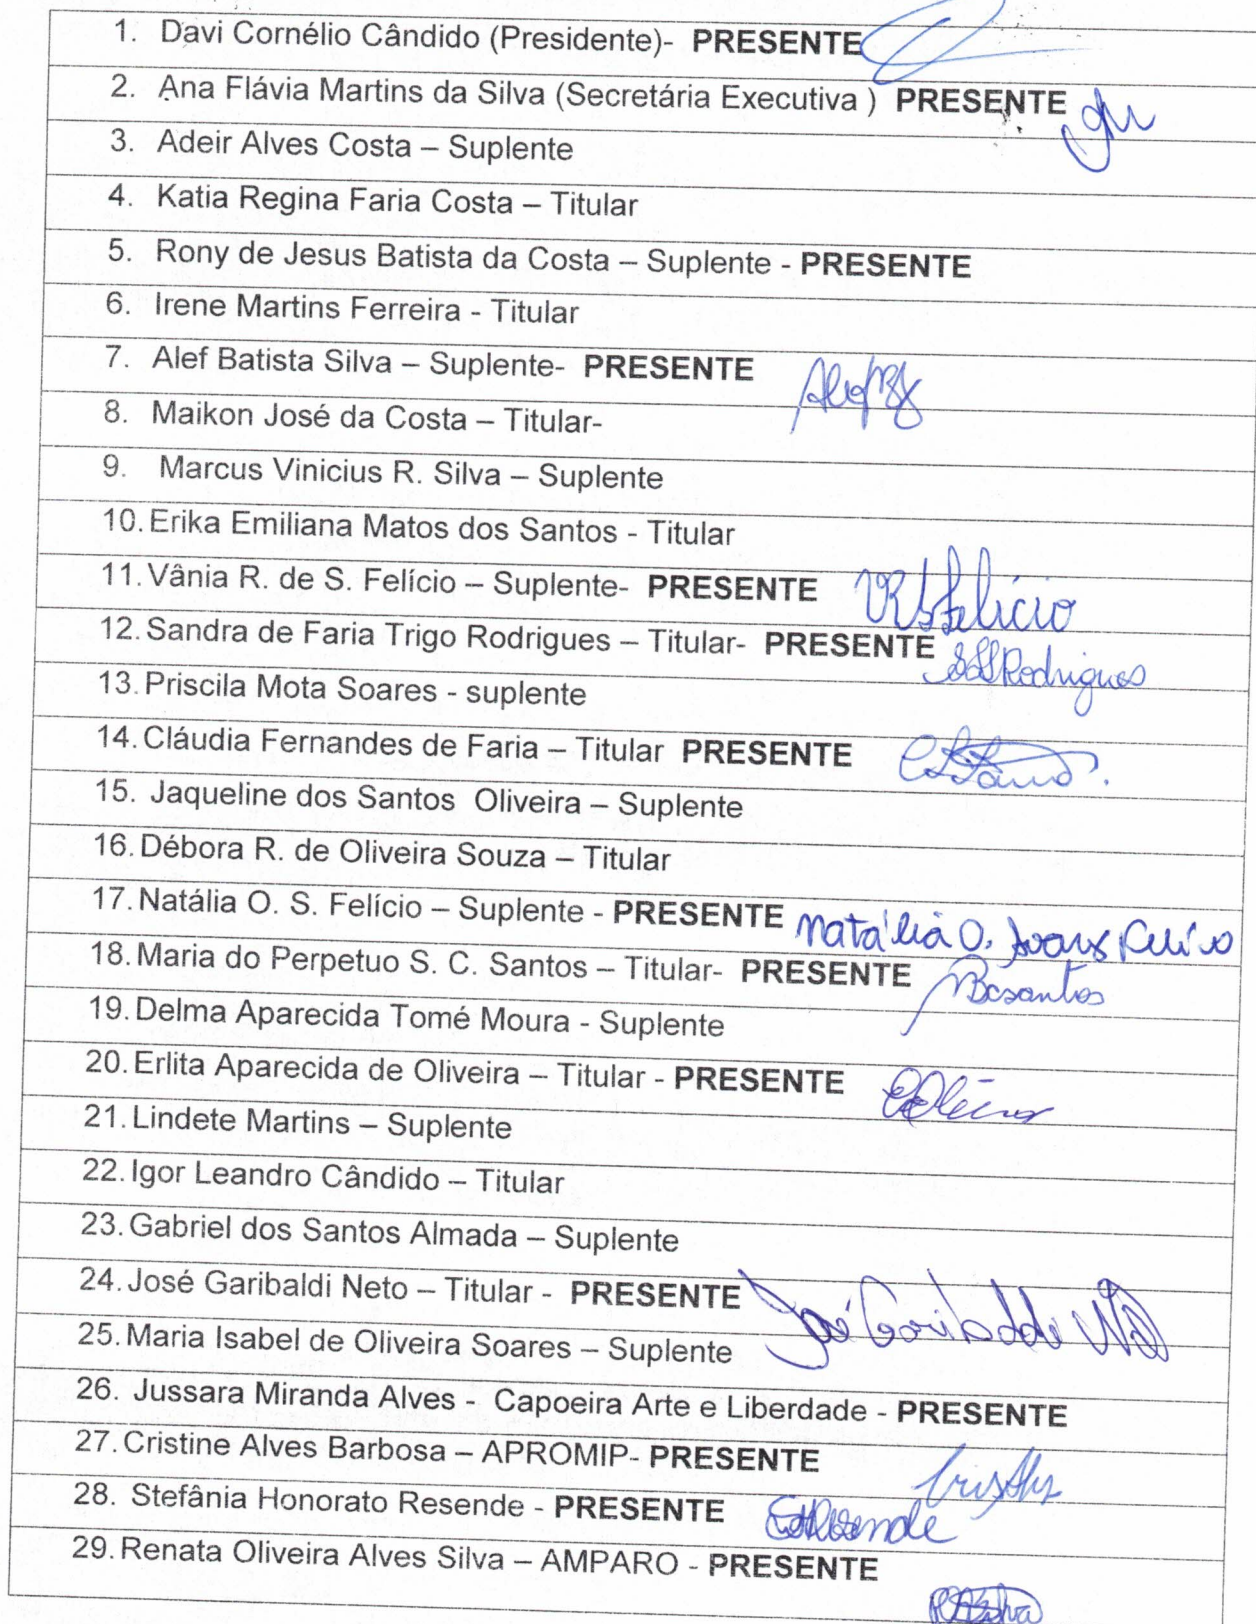 1. Davi Cornélio Cândido (Presidente)- PRESENTE
2. Ana Flávia Martins da Silva (Secretária Executiva ) PRESENTE
3. Adeir Alves Costa – Suplente
4. Katia Regina Faria Costa – Titular
5. Rony de Jesus Batista da Costa – Suplente - PRESENTE
6. Irene Martins Ferreira - Titular
7. Alef Batista Silva – Suplente- PRESENTE
8. Maikon José da Costa – Titular-
9. Marcus Vinicius R. Silva – Suplente
10. Erika Emiliana Matos dos Santos - Titular
11. Vânia R. de S. Felício – Suplente- PRESENTE VRSFelício
12. Sandra de Faria Trigo Rodrigues – Titular- PRESENTE Rodrigues
13. Priscila Mota Soares - suplente
14. Cláudia Fernandes de Faria – Titular PRESENTE
15. Jaqueline dos Santos Oliveira – Suplente
16. Débora R. de Oliveira Souza – Titular
17. Natália O. S. Felício – Suplente - PRESENTE Natália O. Soares Felício
18. Maria do Perpetuo S. C. Santos – Titular- PRESENTE
19. Delma Aparecida Tomé Moura - Suplente
20. Erlita Aparecida de Oliveira – Titular - PRESENTE
21. Lindete Martins – Suplente
22. Igor Leandro Cândido – Titular
23. Gabriel dos Santos Almada – Suplente
24. José Garibaldi Neto – Titular - PRESENTE José Garibaldi Neto
25. Maria Isabel de Oliveira Soares – Suplente
26. Jussara Miranda Alves - Capoeira Arte e Liberdade - PRESENTE
27. Cristine Alves Barbosa – APROMIP- PRESENTE
28. Stefânia Honorato Resende - PRESENTE
29. Renata Oliveira Alves Silva – AMPARO - PRESENTE